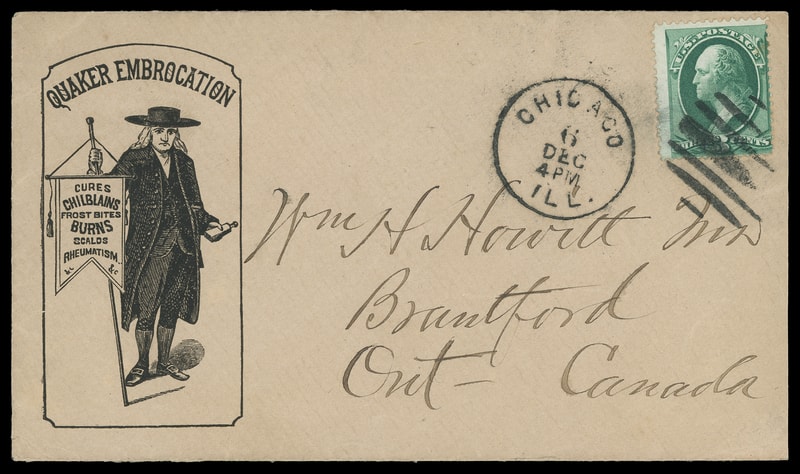 QUAKER EMBROCATION
CURES
CHILBLAINS
FROST BITES
BURNS
SCALDS
RHEUMATISM
&c &c
CHICAGO
6
DEC
4 PM
ILL.
U.S. POSTAGE
Wm H Howitt
Brantford
Ont- Canada